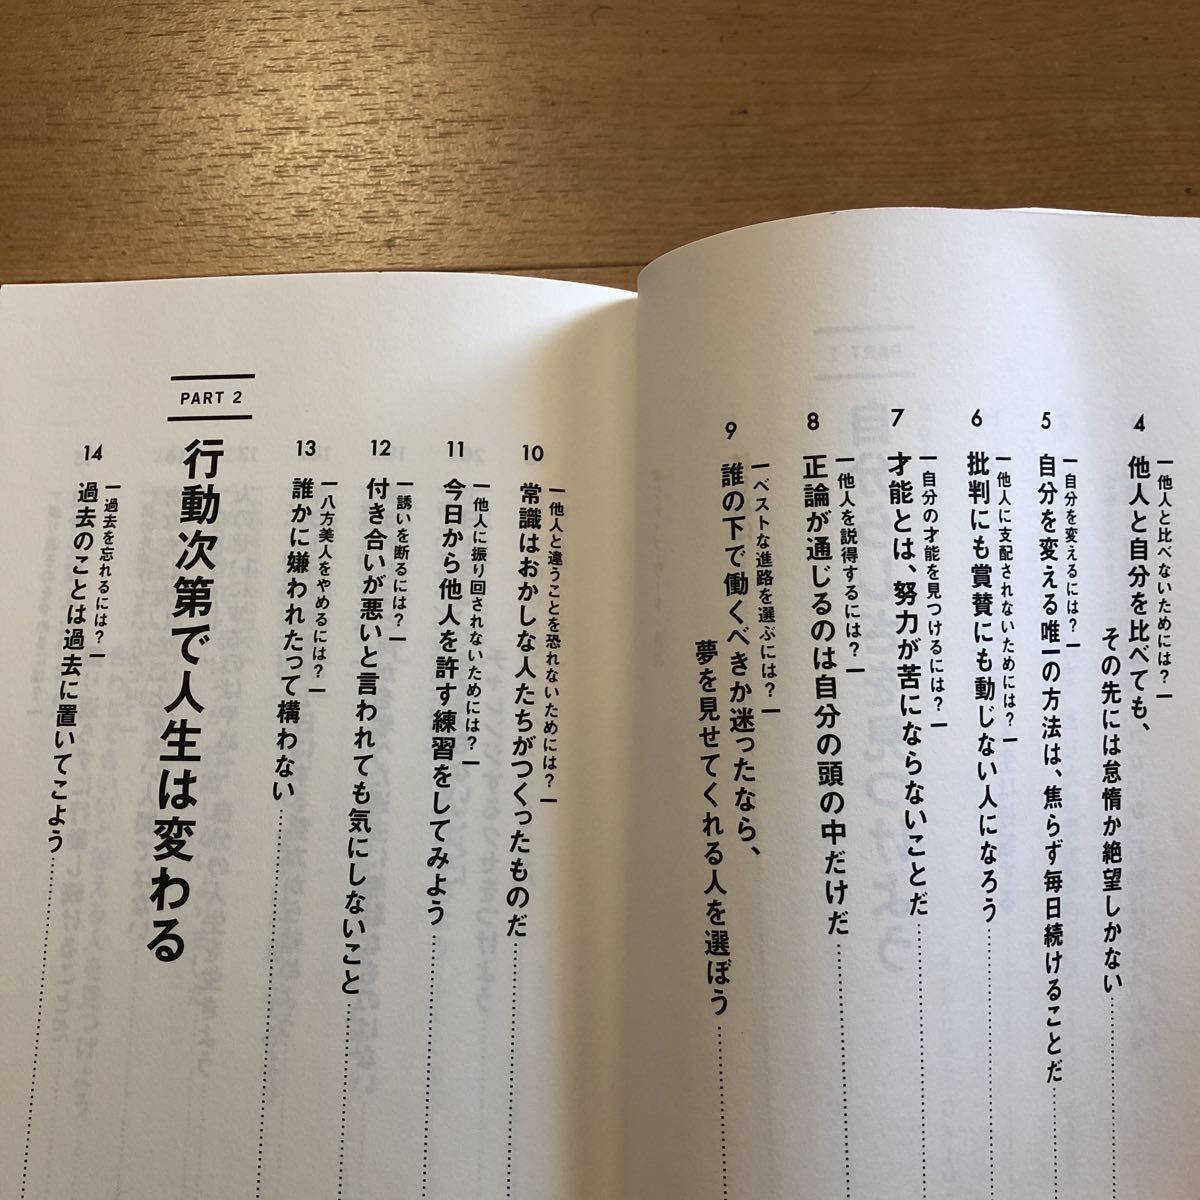 4
他人と比べないためには?
他人と自分を比べても、
その先には怠惰か絶望しかない
5
自分を変えるには?
自分を変える唯一の方法は、焦らず毎日続けることだ
6
他人に支配されないためには?
批判にも賞賛にも動じない人になろう
7
自分の才能を見つけるには?
才能とは、努力が苦にならないことだ
8
他人を説得するには?
正論が通じるのは自分の頭の中だけだ
9
ベストな進路を選ぶには?
誰の下で働くべきか迷ったなら、
夢を見せてくれる人を選ぼう
10
他人と違うことを恐れないためには?
常識はおかしな人たちがつくったものだ
11
他人に振り回されないためには?
今日から他人を許す練習をしてみよう
12
誘いを断るには?
付き合いが悪いと言われても気にしないこと
13
八方美人をやめるには?
誰かに嫌われたって構わない
PART 2
行動次第で人生は変わる
14
過去を忘れるには?
過去のことは過去に置いてこよう